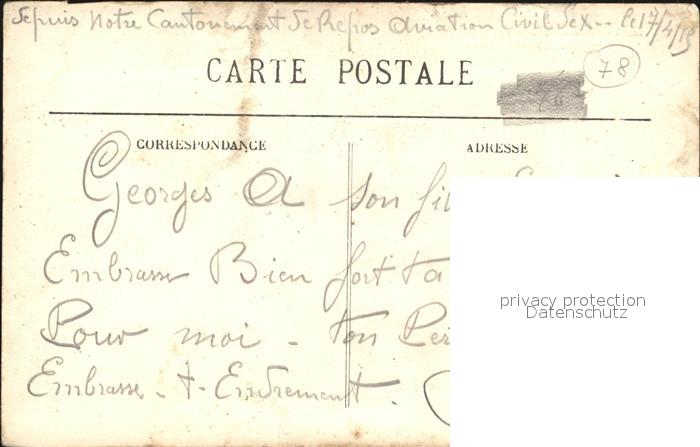 depuis Notre Cantonement de Repos Aviation Civil de X -- le 17/4/15
78
CARTE POSTALE
CORRESPONDANCE
ADRESSE
Georges A son fil
Embrasse Bien fort ta
Pour moi - ton Per
Embrasse - t - Endrement.
privacy protection
Datenschutz